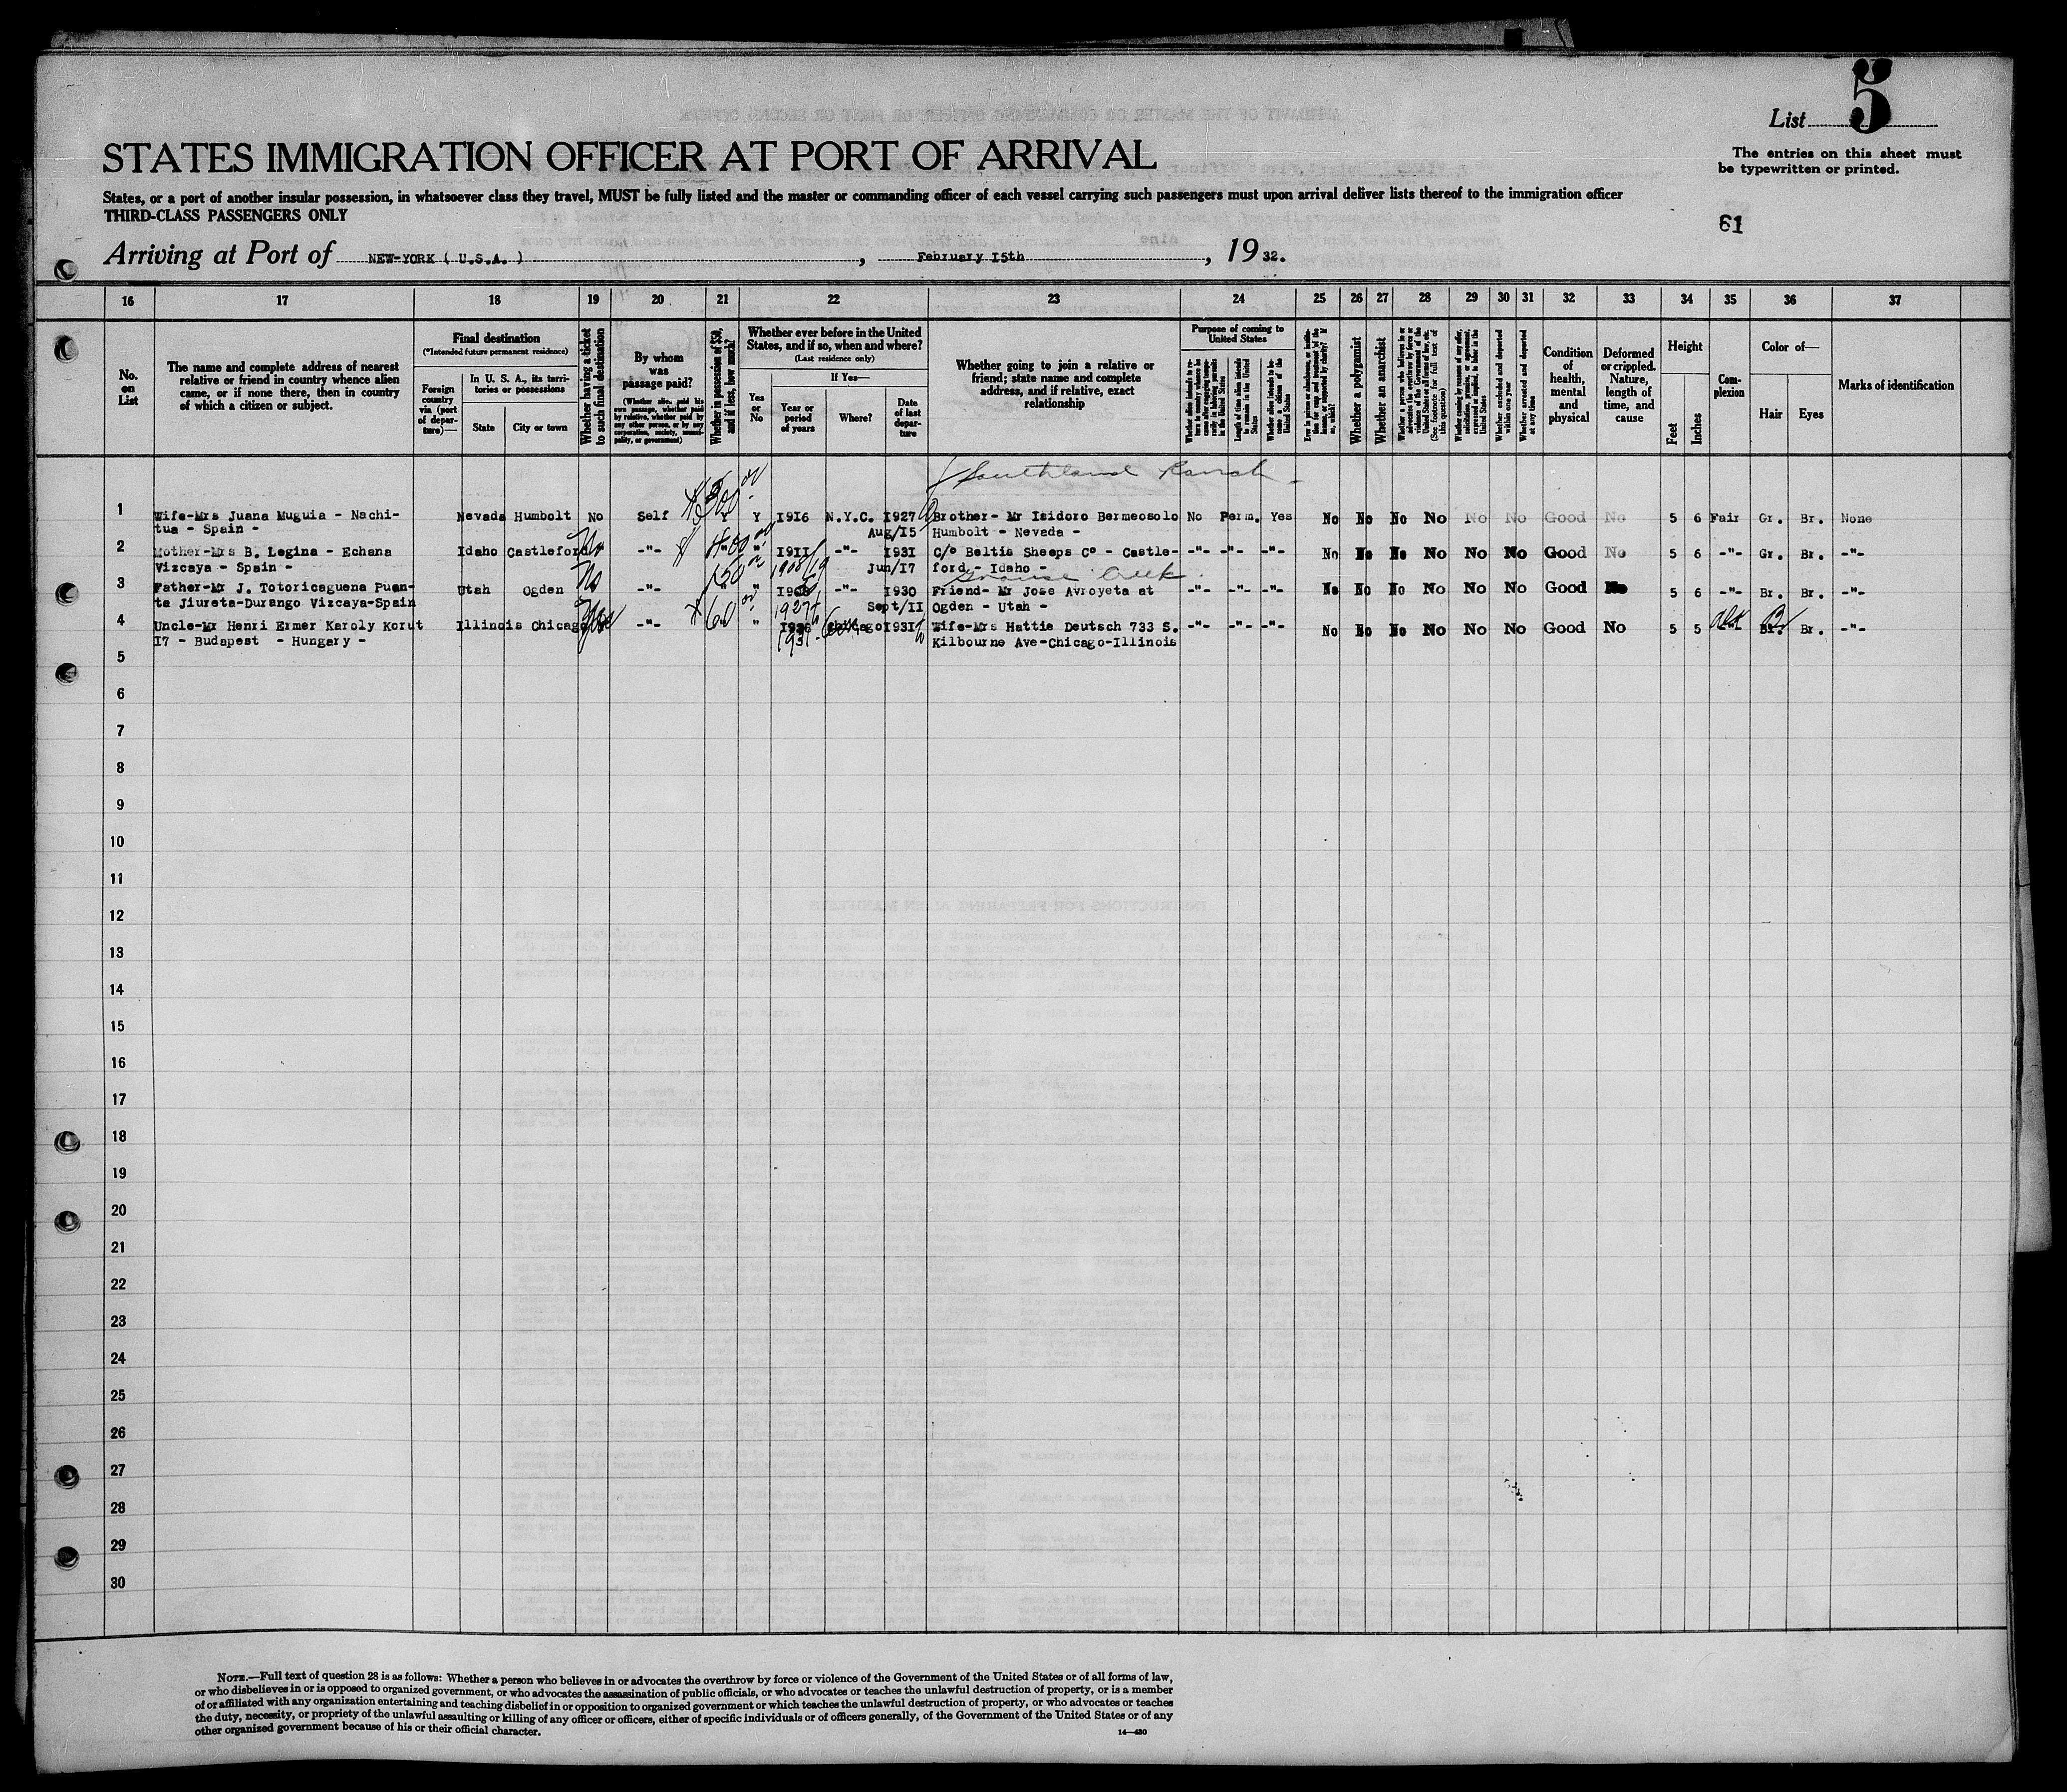 List 5
The entries on this sheet must
be typewritten or printed.
STATES IMMIGRATION OFFICER AT PORT OF ARRIVAL
States, or a port of another insular possession, in whatsoever class they travel, MUST be fully listed and the master or commanding officer of each vessel carrying such passengers must upon arrival deliver lists thereof to the immigration officer
THIRD-CLASS PASSENGERS ONLY
61
Arriving at Port of NEW-YORK ( U.S.A. ) , February I5th , 19 32.
16 17 18 19 20 21 22 23 24 25 26 27 28 29 30 31 32 33 34 35 36 37
No. on List
The name and complete address of nearest
relative or friend in country whence alien
came, or if none there, then in country
of which a citizen or subject.
Final destination
(*Intended future permanent residence)
Foreign country via (port of departure)—
In U. S. A., its territories or possessions
State
City or town
Whether having a ticket to such final destination
By whom was passage paid?
(Whether alien paid his own passage, whether paid by relative, whether paid by any other person, or by any corporation, society, municipality, or government)
Whether in possession of $50, and if less, how much?
Whether ever before in the United
States, and if so, when and where?
(Last residence only)
Yes or No
If Yes—
Year or period of years
Where?
Date of last departure
Whether going to join a relative or
friend; state name and complete
address, and if relative, exact
relationship
Purpose of coming to United States
Length of time alien intends to remain in the United States
Whether alien intends to become a citizen of the United States
Whether a polygamist
Whether an anarchist
Whether excluded and deported within one year
Whether arrested and deported at any time
Condition of health, mental and physical
Deformed or crippled. Nature, length of time, and cause
Height
Feet
Inches
Complexion
Color of—
Hair
Eyes
Marks of identification
Southland Ranch
$300
1 Wife-Mrs Juana Muguia - Nachi- Nevada Humbolt No Self Y Y I9I6 N.Y.C. I927 Brother- Mr Isidoro Bermeosolo No Perm. Yes No No No No No No Good No 5 6 Fair Gr. Br. None
tua - Spain - Aug/I5 Humbolt - Nevada -
2 Mother-Mrs B. Legina - Echana Idaho Castleford No -"- 400 " I9II -"- I93I C/o Beltis Sheeps Co - Castle- -"- -"- -"- No No No No No No Good No 5 6 -"- Gr. Br. -"-
Vizcaya - Spain - Jun/I7 ford - Idaho -
Grouse Creek
3 Father-Mr J. Totoricaguena Puan- Utah Ogden No -"- 150 " -"- I930 Friend- Mr Jose Avroyeta at -"- -"- -"- No No No No No No Good No 5 6 -"- Br. Br. -"-
ta Jiureta-Durango Vizcaya-Spain Sept/II Ogden - Utah -
4 Uncle-Mr Henri Ermer Karoly Korut Illinois Chicago -"- 60 " 1927 Chicago I93I Wife-Mrs Hattie Deutsch 733 S. -"- -"- -"- No No No No No No Good No 5 5 Br. Br. -"-
I7 - Budapest - Hungary - 1931 Kilbourne Ave-Chicago-Illinois
5
6
7
8
9
10
11
12
13
14
15
16
17
18
19
20
21
22
23
24
25
26
27
28
29
30
NOTE.—Full text of question 28 is as follows: Whether a person who believes in or advocates the overthrow by force or violence of the Government of the United States or of all forms of law,
or who disbelieves in or is opposed to organized government, or who advocates the assassination of public officials, or who advocates or teaches the unlawful destruction of property, or is a member
of or affiliated with any organization entertaining and teaching disbelief in or opposition to organized government or which teaches the unlawful destruction of property, or who advocates or teaches
the duty, necessity, or propriety of the unlawful assaulting or killing of any officer or officers, either of specific individuals or of officers generally, of the Government of the United States or of any
other organized government because of his or their official character.
14—430